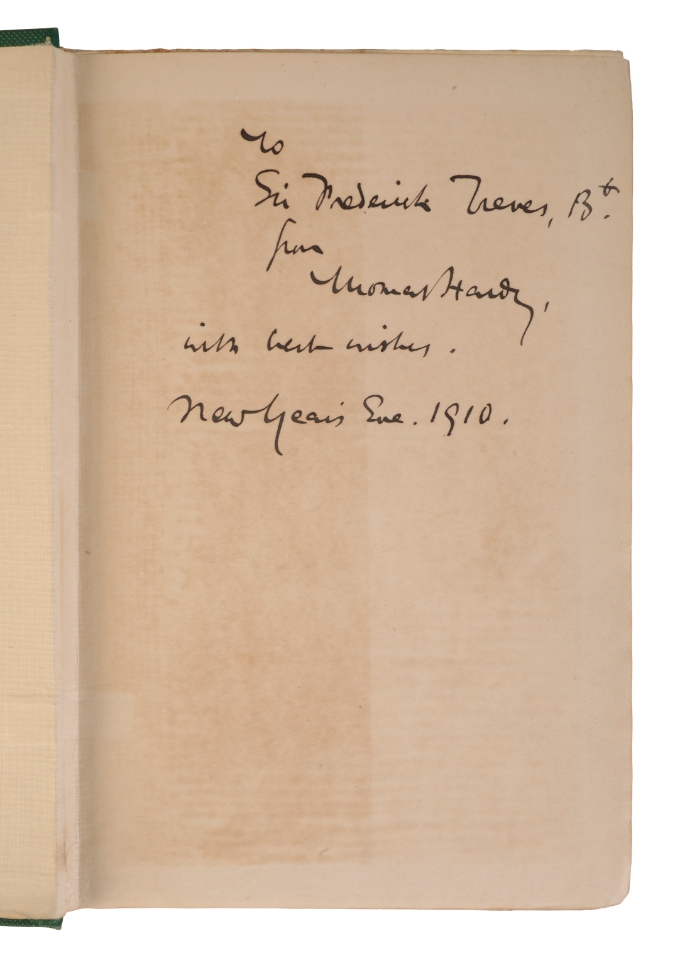 To
Sir Frederick Treves, Bt.
from
Thomas Hardy,
with best wishes.
New Year's Eve. 1910.